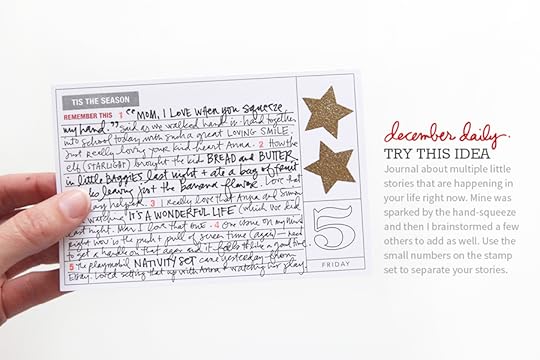 TIS THE SEASON
REMEMBER THIS 1 "MOM, I LOVE WHEN you squeeze
my hand." Said as we walked hand in hand together
into school today with such a great LOVING SMILE.
Just really loving your kind heart Anna. 2 How the
elf (STARLIGHT) brought the kids BREAD and BUTTER
in little baggies last night + ate a bag of fruit
leaving just the banana flavor. Love that
helpers. 3 I really love that Anna and Simon
watching "IT'S A WONDERFUL LIFE" (which we did
last night. Man I love that one. 4 One thing on my mind
right now is the push + pull of screen time (ages) — need
to get a handle on that again and it feels like a good time.
5 The playmobil NATIVITY SET came yesterday from
Ebay. Loved setting that up with Anna + watching her play.
5
FRIDAY
december daily.
TRY THIS IDEA
Journal about multiple little
stories that are happening in
your life right now. Mine was
sparked by the hand-squeeze
and then I brainstormed a few
others to add as well. Use the
small numbers on the stamp
set to separate your stories.